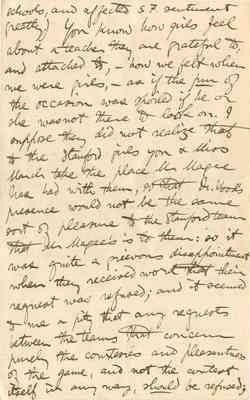 schools, and affection & sentiment
prettily) You know how girls feel
about a teacher they are grateful to,
and attached to, – how we felt when
we were girls, – as if the fun of
the occasion was spoiled if he or
she was not there to look on. I
suppose they did not realize that
to the Stanford girls you & Miss
March take the place Mr Magee
has had with them, so that
presence would not be the same
sort of pleasure to the Stanford team
that Mr Magee's is to them; so it
was quite a grievous disappointment
when they received word that their
request was refused; and it seemed
to me a pity that any requests
between the teams that concern
purely the courtesies and pleasantness
of the game, and not the contest
itself in any way, should be refused;